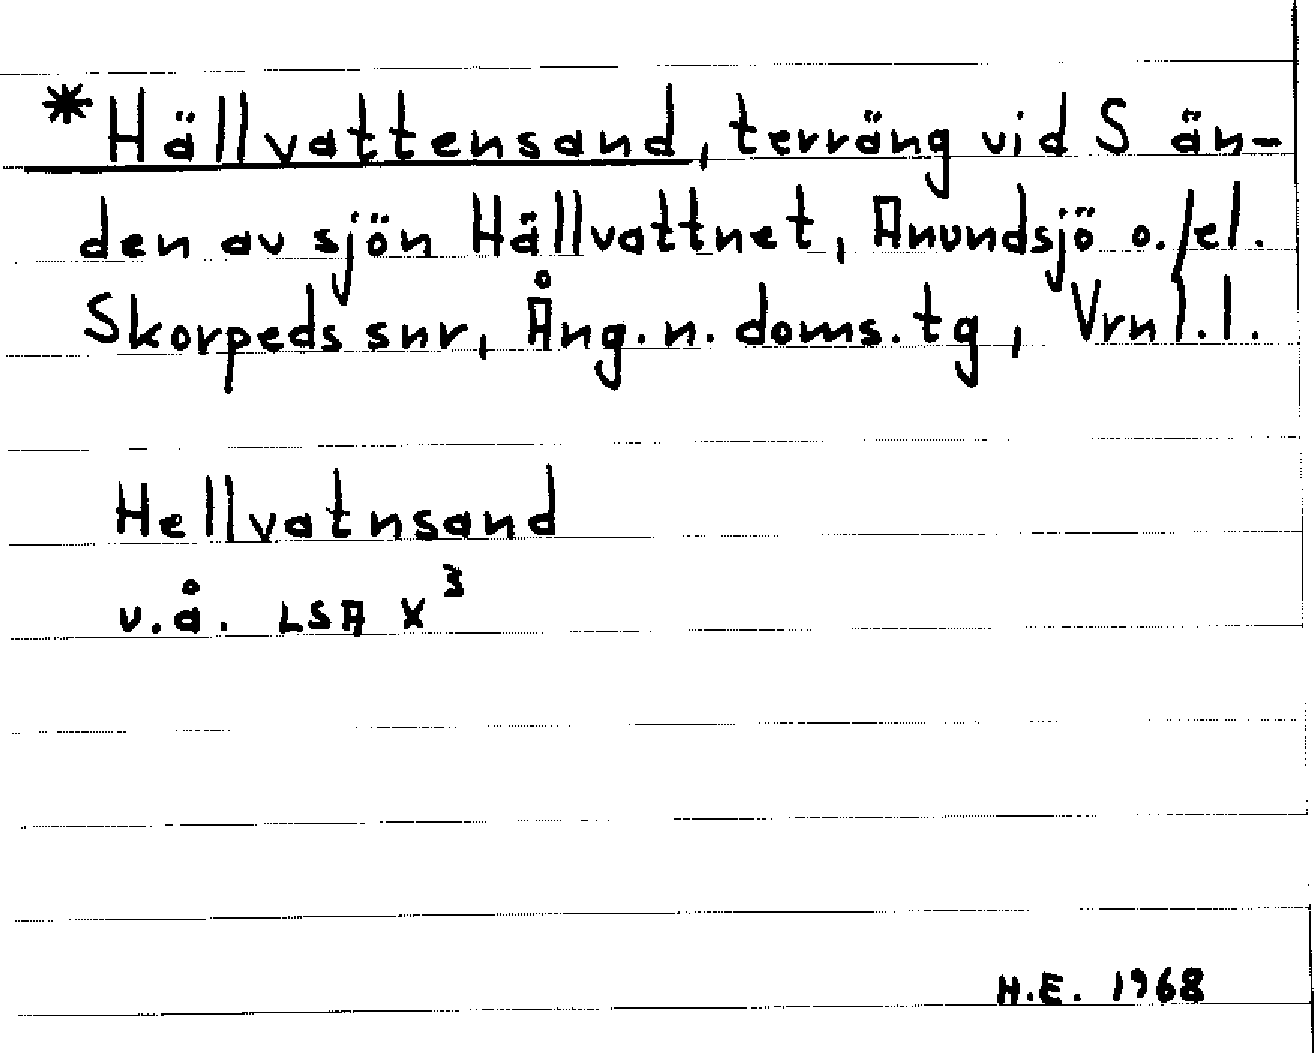 *Hällvattensand, terräng vid S än-
den av sjön Hällvattnet, Anundsjö o./el.
Skorpeds snr, Ång. n. doms. tg, Vrnl. l.
Hellvatnsand
v.å. LSA X³
H.E. 1968